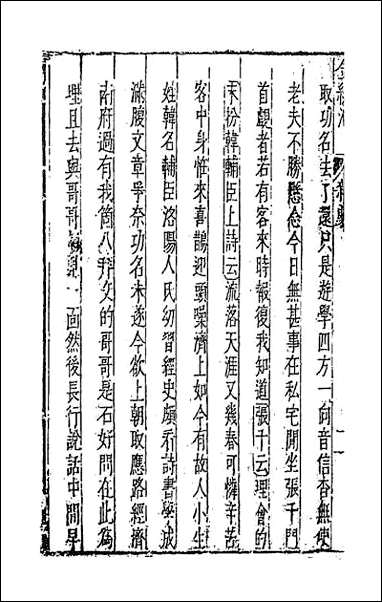 金線池
取功名去了還只是遊學四方一向音信杳無使
老夫不勝懸念今日無甚事在私宅閒坐張千門
首覷者若有客來時報復我知道張千云理會的
末扮韓輔臣上詩云流落天涯又幾春可憐辛苦
客中身怪來喜鵲迎頭噪濟上如今有故人小生
姓韓名輔臣洛陽人氏幼習經史頗看詩書學成
滿腹文章爭奈功名未遂今欲上朝取應路經濟
南府過有我箇八拜交的哥哥是石好問在此為
理且去與哥哥相見一面然後長行說話中間早